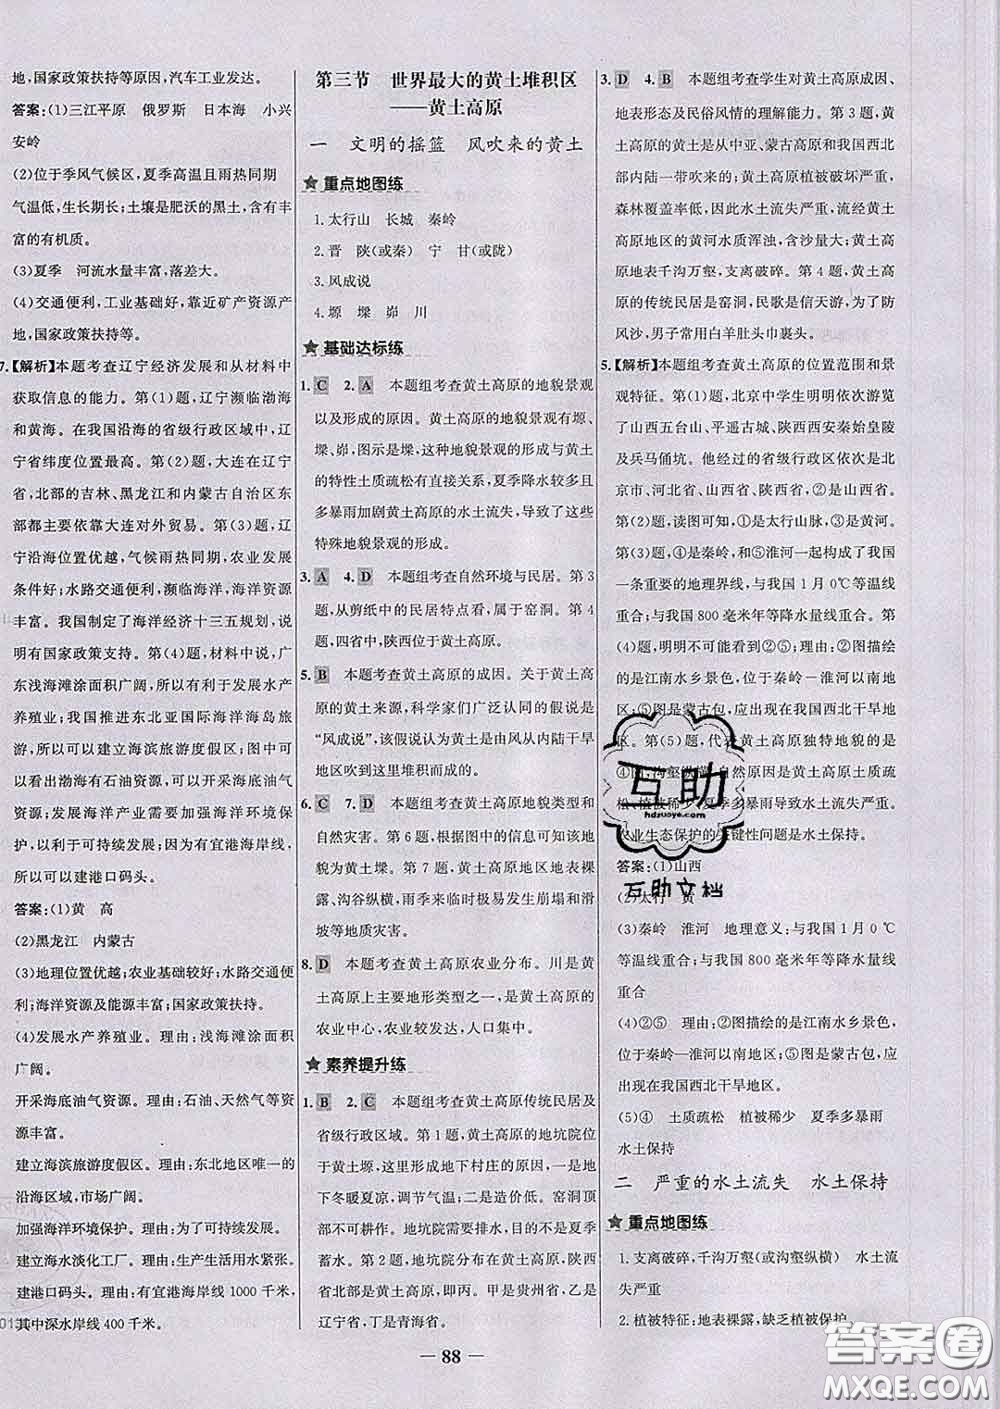 地,国家政策扶持等原因,汽车工业发达。
答案:(1)三江平原　俄罗斯　日本海　小兴
安岭
(2)位于季风气候区,夏季高温且雨热同期
气温低,生长期长;土壤是肥沃的黑土,含有丰
富的有机质。
(3)夏季　河流水量丰富,落差大。
(4)交通便利,工业基础好,靠近矿产资源产
地,国家政策扶持等。
7.【解析】本题考查辽宁经济发展和从材料中
获取信息的能力。第(1)题,辽宁濒临渤海
和黄海。在我国沿海的省级行政区域中,辽
宁省纬度位置最高。第(2)题,大连在辽宁
省,北部的吉林、黑龙江和内蒙古自治区东
部都主要依靠大连对外贸易。第(3)题,辽
宁沿海位置优越,气候雨热同期,农业发展
条件好;水路交通便利,濒临海洋,海洋资源
丰富。我国制定了海洋经济十三五规划,说
明有国家政策支持。第(4)题,材料中说,广
东浅海滩涂面积广阔,所以有利于发展水产
养殖业;我国推进东北亚国际海洋海岛旅
游,所以可以建立海滨旅游度假区;图中可
以看出渤海有石油资源,可以开采海底油气
资源;发展海洋产业需要加强海洋环境保
护,以利于可持续发展;因为有宜港海岸线,
所以可以建港口码头。
答案:(1)黄　高
(2)黑龙江　内蒙古
(3)地理位置优越;农业基础较好;水路交通便
利;海洋资源及能源丰富;国家政策扶持。
(4)发展水产养殖业。理由:浅海滩涂面积
广阔。
开采海底油气资源。理由:石油、天然气等资
源丰富。
建立海滨旅游度假区。理由:东北地区唯一的
沿海区域,市场广阔。
加强海洋环境保护。理由:为了可持续发展。
建立海水淡化工厂。理由:生产生活用水紧张。
建港口码头。理由:有宜港海岸线1000千米,
其中深水岸线400千米。
第三节　世界最大的黄土堆积区
——黄土高原
一　文明的摇篮　风吹来的黄土
★重点地图练
1.太行山　长城　秦岭
2.晋　陕(或秦)　宁　甘(或陇)
3.风成说
4.塬　墚　峁　川
★基础达标练
1. C　2. A　本题组考查黄土高原的地貌景观
以及形成的原因。黄土高原的地貌景观有塬、
墚、峁,图示是墚,这种地貌景观的形成与黄土
的特性土质疏松有直接关系,夏季降水较多且
多暴雨加剧黄土高原的水土流失,导致了这些
特殊地貌景观的形成。
3. A　4. D　本题组考查自然环境与民居。第3
题,从剪纸中的民居特点看,属于窑洞。第4
题,四省中,陕西位于黄土高原。
5. B　本题考查黄土高原的成因。关于黄土高
原的黄土来源,科学家们广泛认同的假说是
“风成说”,该假说认为黄土是由风从内陆干旱
地区吹到这里堆积而成的。
6. C　7. D　本题组考查黄土高原地貌类型和
自然灾害。第6题,根据图中的信息可知该地
貌为黄土墚。第7题,黄土高原地区地表裸
露、沟谷纵横,雨季来临时极易发生崩塌和滑
坡等地质灾害。
8. D　本题考查黄土高原农业分布。川是黄土
高原上主要地形类型之一,是黄土高原的
农业中心,农业较发达,人口集中。
★素养提升练
1. B　2. C　本题组考查黄土高原传统民居及
省级行政区域。第1题,黄土高原的地坑院分
布广,这里形成了地下村庄的原因,一是地
下冬暖夏凉,调节气温;二是造价低。窑洞顶
部不可耕作。地坑院需要排水,目的不是夏季
蓄水。第2题,地坑院分布在黄土高原,陕西
省位于黄土高原,即丙。甲是贵州省,乙是
辽宁省,丁是青海省。
3. D　4. B　本题组考查学生对黄土高原成因、
地表形态及民俗风情的理解能力。第3题,黄
土高原的黄土是从中亚、蒙古高原和我国西北
部内陆一带吹来的;黄土高原植被破坏严重,
森林覆盖率低,因此水土流失严重,流经黄土
高原地区的黄河水质浑浊,含沙量大;黄土高
原地区地表千沟万壑,支离破碎。第4题,黄土高原
的传统民居是窑洞,民歌是信天游,为了防
风沙,男子常用白羊肚头巾裹头。
5.【解析】本题考查黄土高原的位置范围和景
观特征。第(1)题,北京中学生明明依次游览
了山西五台山、平遥古城、陕西西安秦始皇陵
及兵马俑坑。他经过的省级行政区依次是北
京市、河北省、山西省、陕西省,②是山西省。
第(2)题,读图可知,①是太行山脉,③是黄河。
第(3)题,④是秦岭和⑤淮河一起构成了我国
一条重要的地理界线,与我国1月0℃等温线
重合,与我国800毫米年等降水量线重合。第
(4)题,明明不可能遇到②⑤;理由:②图描绘
的是江南水乡景色,位于秦岭—淮河以南地
区;⑤图是蒙古包,应出现在我国西北干旱地
区。第(5)题,代表黄土高原独特地貌的是
④图;沟壑纵横,自然原因是黄土土质疏
松、植被稀少、夏季多暴雨导致水土流失严重。
农业生态保护的关键性问题是水土保持。
答案:(1)山西
(2)太行　黄
(3)秦岭　淮河　地理意义:与我国1月0℃
等温线重合,与我国800毫米年等降水量线
重合
(4)②⑤　理由:②图描绘的是江南水乡景色,
位于秦岭—淮河以南地区;⑤图是蒙古包,应
出现在我国西北干旱地区。
(5)④　土质疏松　植被稀少　夏季多暴雨
水土保持
二　严重的水土流失　水土保持
★重点地图练
1.支离破碎,千沟万壑(或沟壑纵横)　水土流
失严重
2.植被覆盖率低,缺乏植被保护。
互助
hdzuoye.com
互助文档
— 88 —
答案圈
MXQE.COM